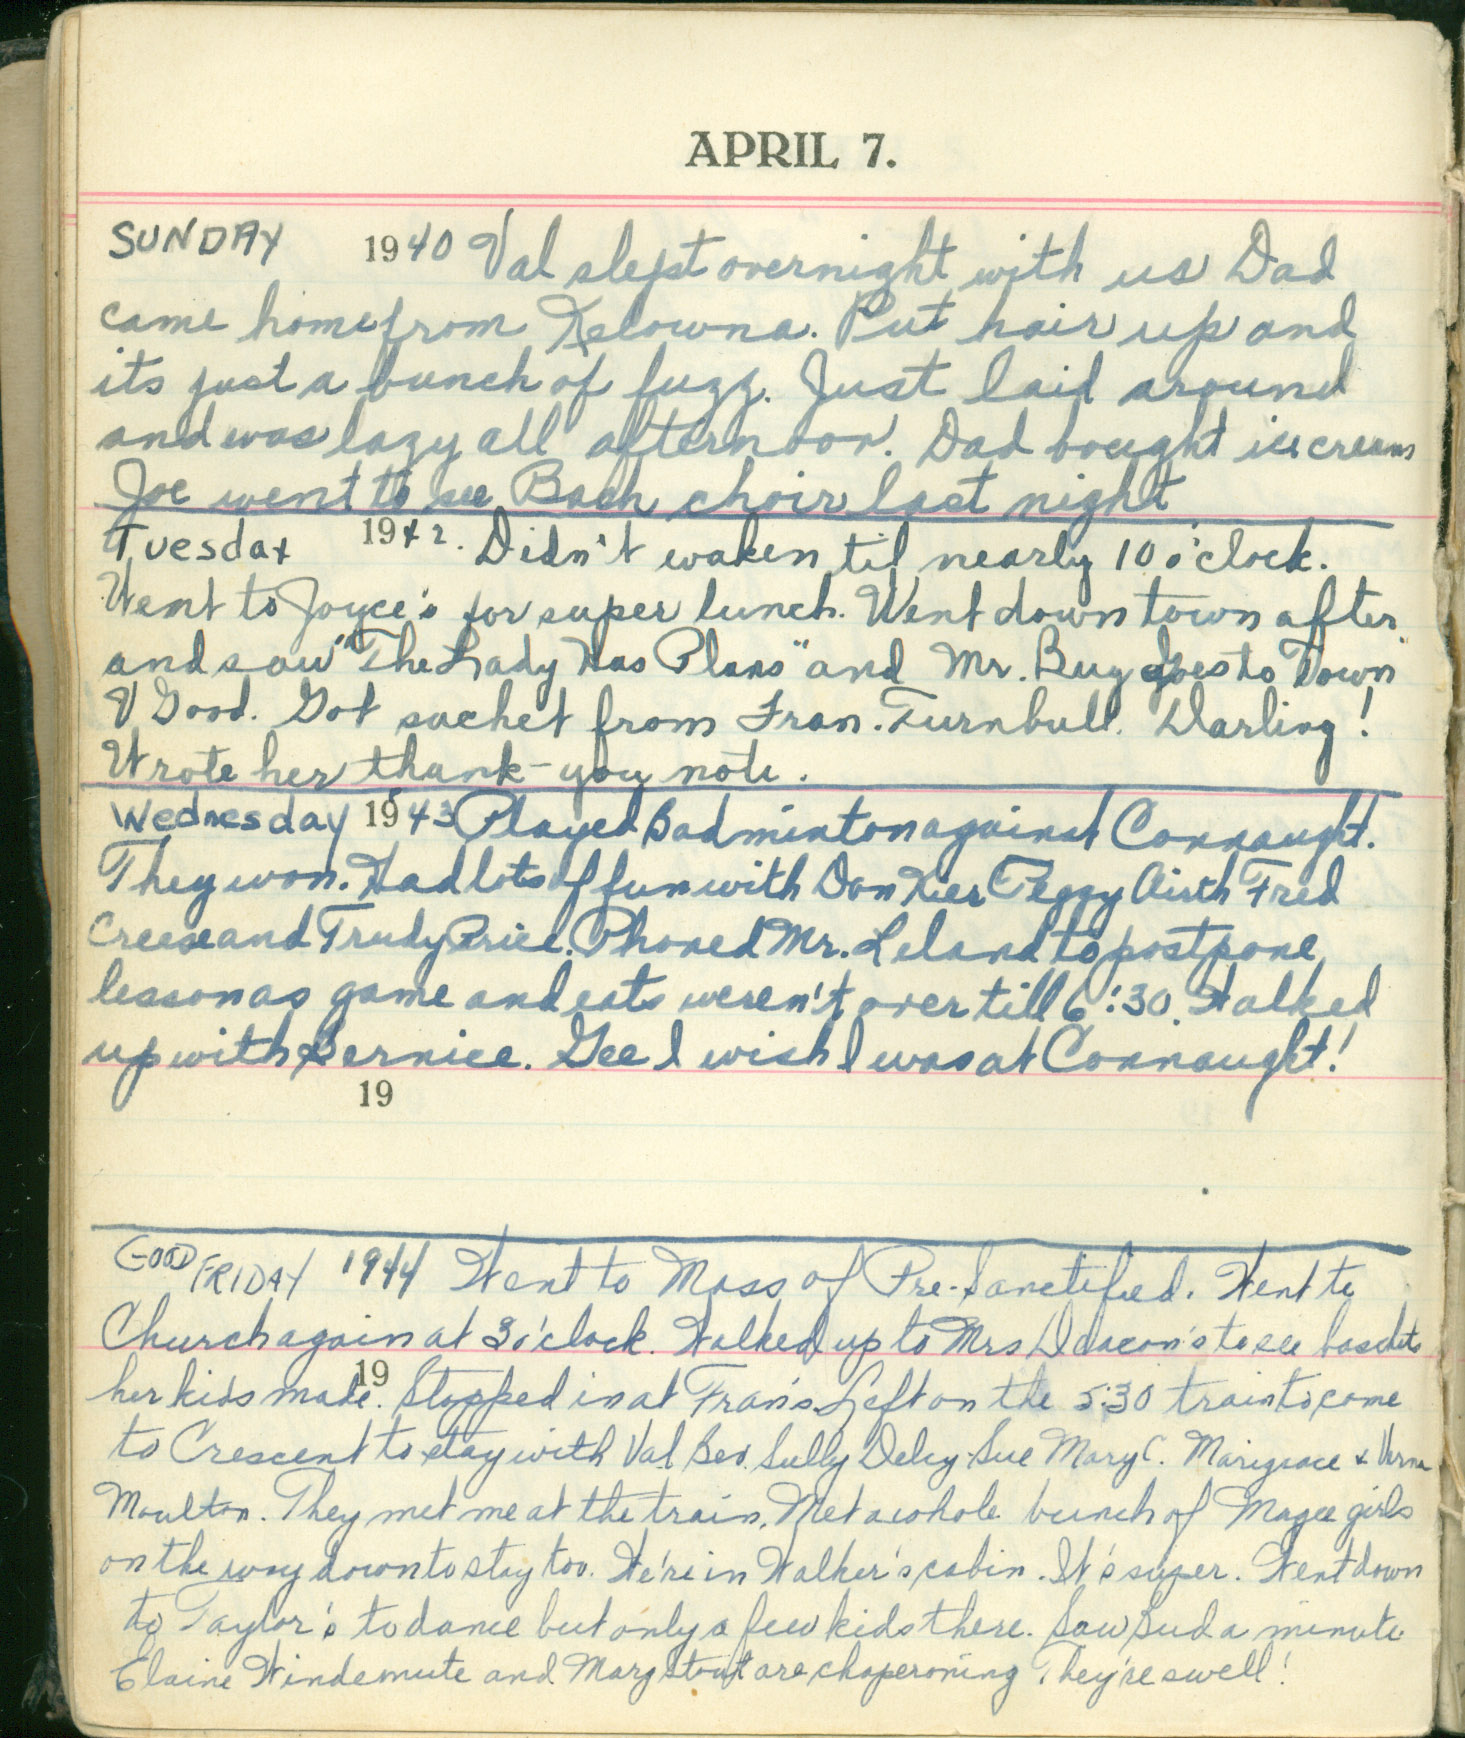 APRIL 7.
SUNDAY 1940 Val slept overnight with us Dad
came home from Kelowna. Put hair up and
its just a bunch of fuzz. Just laid around
and was lazy all afternoon. Dad bought ice creams
Joe went to see Bach choir last night
Tuesday 1942. Didn't waken til nearly 10 o'clock.
Went to Joyce's for super lunch. Went down town after
and saw "The Lady Has Plans" and Mr. Bug Goes to Town"
V Good. Got sachet from Fran. Turnbull. Darling!
Wrote her thank-you note.
Wednesday 1943 Played Badminton against Connaught.
They won. Had lots of fun with Don Kier Peggy Airth Fred
Creese and Trudy Price. Phoned Mr. Leland to postpone
lesson as game and eats weren't over till 6:30. Walked
up with Bernice. Gee I wish I was at Connaught!
19
GOOD FRIDAY 1944 Went to Mass of Pre-Sanctified. Went to
Church again at 3 o'clock. Walked up to Mrs Deacon's to see baskets
19
her kids made. Stopped in at Fran's Left on the 5:30 train to come
to Crescent to stay with Val Bev. Sully Delcy-Sue Mary C. Marigrace & Verna
Moulton. They met me at the train. Met a whole bunch of Magee girls
on the way down to stay too. We're in Walker's cabin. It's super. Went down
to Taylor's to dance but only a few kids there. Saw Bud a minute
Elaine Windemute and Mary Stout are chaperoning They're swell!